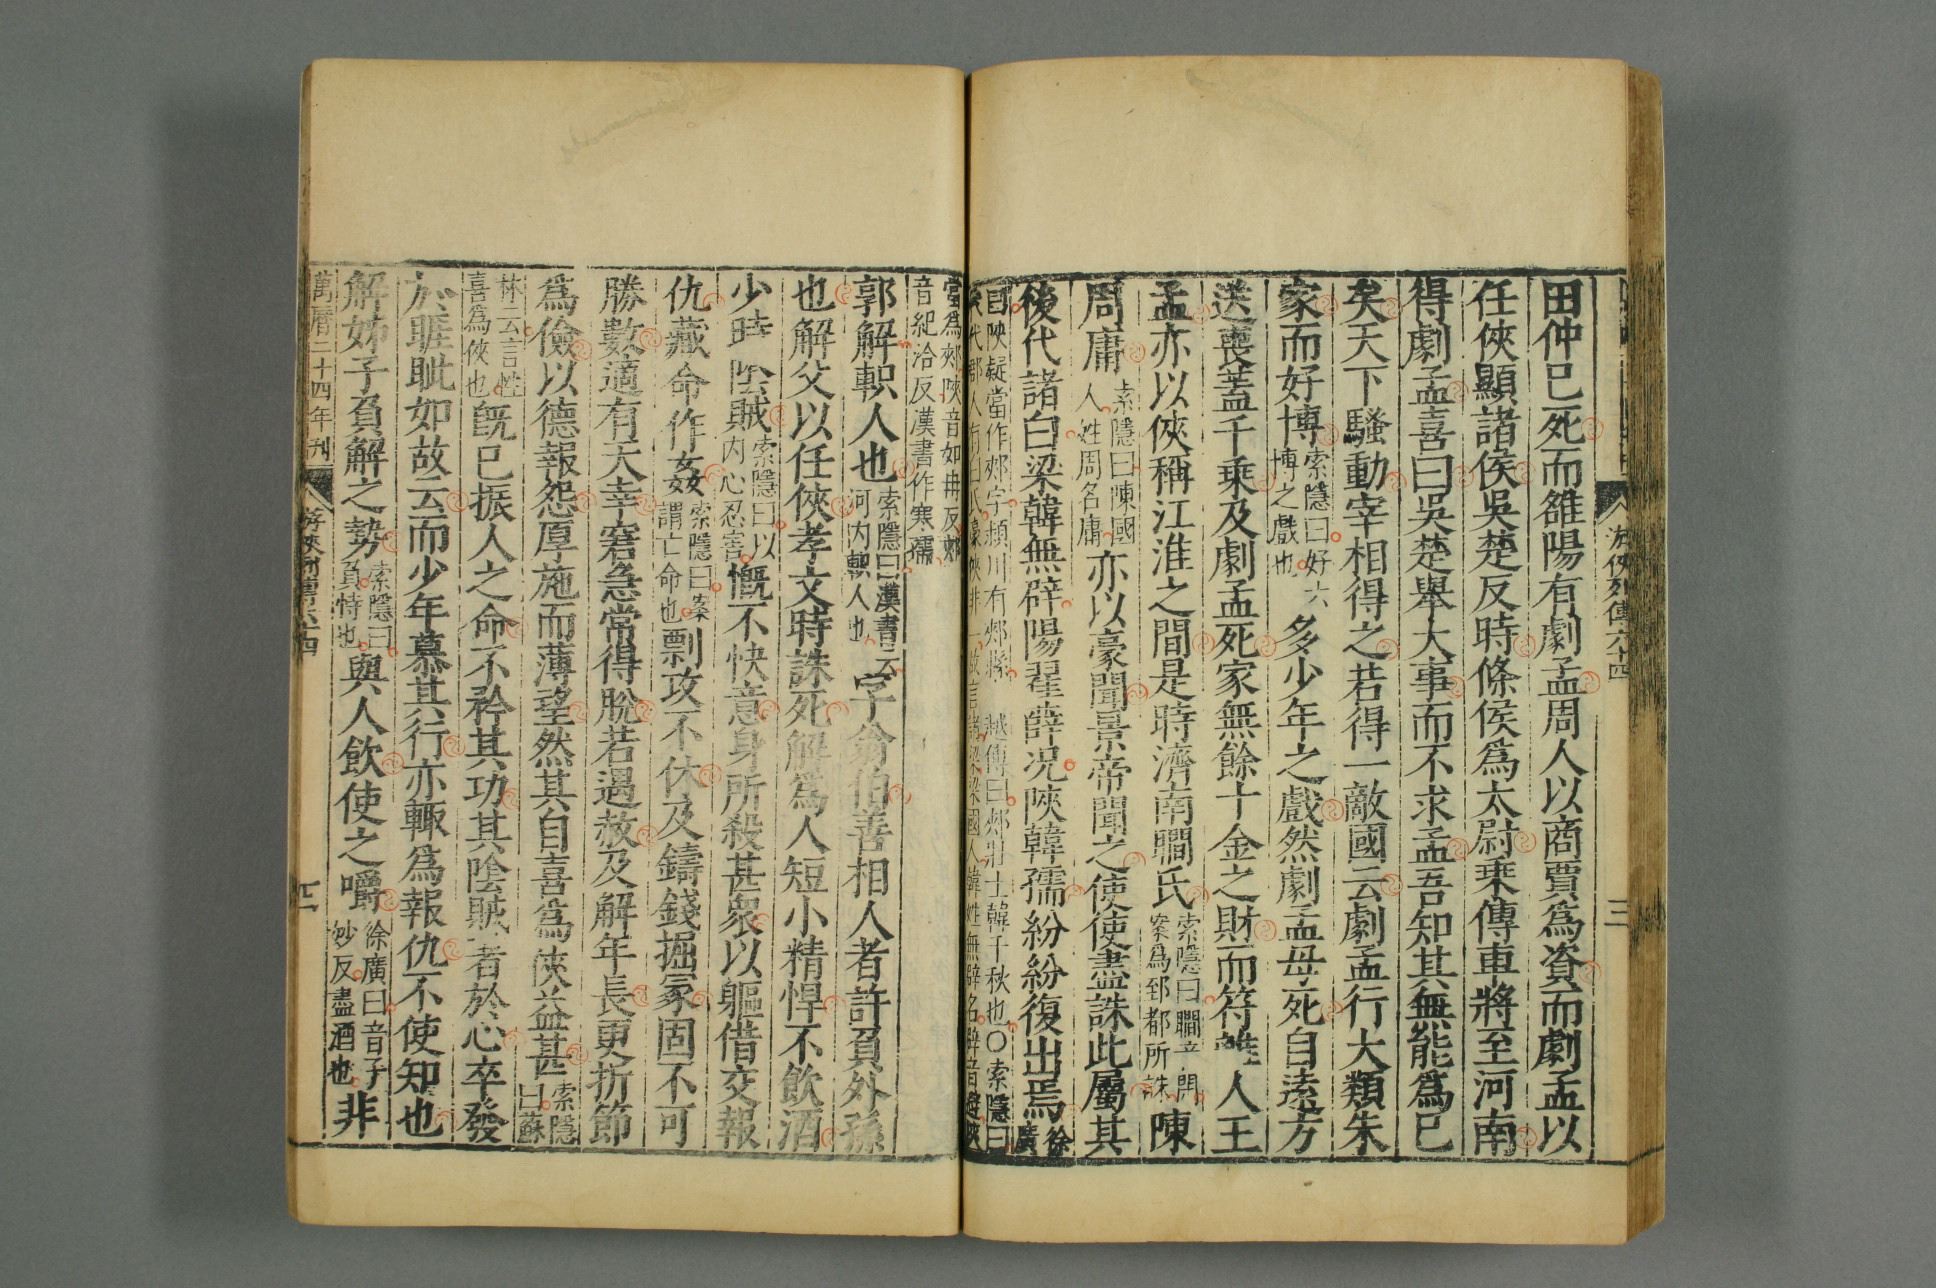 田仲已死而雒陽有劇孟周人以商賈為資而劇孟以
任俠顯諸侯吳楚反時條侯為太尉乘傳車將至河南
得劇孟喜曰吳楚舉大事而不求孟吾知其無能為已
矣天下騷動宰相得之若得一敵國云劇孟行大類朱
家而好博索隱曰好六博之戲也多少年之戲然劇孟母死自遠方
送喪蓋千乘及劇孟死家無餘十金之財而符離人王
孟亦以俠稱江淮之間是時濟南瞷氏索隱曰瞷音閑案為郅都所誅陳
周庸索隱曰陳國人姓周名庸亦以豪聞景帝聞之使使盡誅此屬其
後代諸白梁韓無辟陽翟薛況陝韓孺紛紛復出焉徐廣
曰陝疑當作郟字潁川有郟縣 越傳曰郟壯士韓千秋也○索隱曰
當為郟陝音如冉反郟
音紀洽反漢書作寒孺
郭解軹人也索隱曰漢書云河內軹人也字翁伯善相人者許負外孫
也解父以任俠孝文時誅死解為人短小精悍不飲酒
少時陰賊索隱曰以內心忍害慨不快意身所殺甚眾以軀借交報
仇藏命作姦索隱曰案謂亡命也剽攻不休及鑄錢掘冢固不可
勝數適有天幸窘急常得脫若遇赦及解年長更折節
為儉以德報怨厚施而薄望然其自喜為俠益甚索隱曰蘇
林云言性喜為俠也既已振人之命不矜其功其陰賊者於心卒發
於睚眦如故云而少年慕其行亦輒為報仇不使知也
解姊子負解之勢索隱曰負恃也與人飲使之嚼徐廣曰音子妙反盡酒也非
萬曆二十四年刊
游俠列傳六十四
四
游俠列傳六十四
三